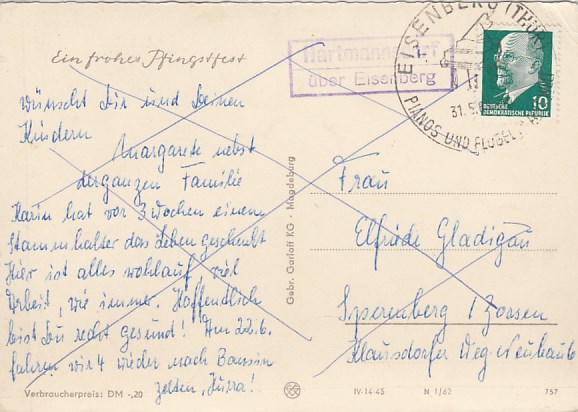 Ein frohes Pfingstfest
wünscht Dir und Deinen
Kindern
Margarete nebst
der ganzen Familie
Karin hat vor 3 Wochen einem
Stammhalter das Leben geschenkt
Hier ist alles wohlauf, viel
Arbeit, wie immer. Hoffentlich
bist Du recht gesund! Am 22.6.
fahren wir 4 wieder nach Bansin
zelten, Hurra!
Verbraucherpreis: DM -,20
Gebr. Garloff KG · Magdeburg
Hartmannsdorf
über Eisenberg
EISENBERG (THÜR)
31.5.
PIANOS UND FLÜGEL
DEUTSCHE
DEMOKRATISCHE REPUBLIK
10
Frau
Elfriede Gladigau
Sperenberg / Zossen
Klausdorfer Weg-Neubau 6
IV-14-45 N 1/62 757